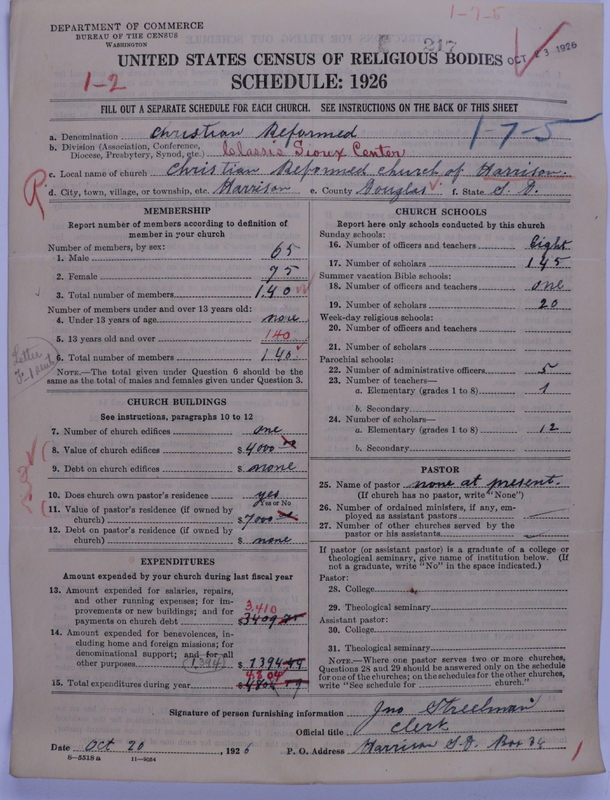 1-7-5
DEPARTMENT OF COMMERCE
BUREAU OF THE CENSUS
WASHINGTON
217
OCT 23 1926
UNITED STATES CENSUS OF RELIGIOUS BODIES
1-2
SCHEDULE: 1926
FILL OUT A SEPARATE SCHEDULE FOR EACH CHURCH. SEE INSTRUCTIONS ON THE BACK OF THIS SHEET
a. Denomination Christian Reformed
1-7-5
b. Division (Association, Conference, Diocese, Presbytery, Synod, etc.) Classis Sioux Center
c. Local name of church Christian Reformed church of Harrison.
d. City, town, village, or township, etc. Harrison e. County Douglas f. State S. D.
MEMBERSHIP
Report number of members according to definition of
member in your church
Number of members, by sex:
1. Male 65
2. Female 75
3. Total number of members 140
Number of members under and over 13 years old:
4. Under 13 years of age none
5. 13 years old and over 140
6. Total number of members 140
NOTE.—The total given under Question 6 should be
same as the total of males and females given under Question 3.
Letter
CHURCH BUILDINGS
See instructions, paragraphs 10 to 12
7. Number of church edifices one
8. Value of church edifices $ 4000
9. Debt on church edifices $ none
10. Does church own pastor's residence yes
Yes or No
11. Value of pastor's residence (if owned by
church) $ 7000
12. Debt on pastor's residence (if owned by
church) $ none
EXPENDITURES
Amount expended by your church during last fiscal year
13. Amount expended for salaries, repairs,
and other running expenses; for im-
provements or new buildings; and for
payments on church debt 3,410 $ 3409
14. Amount expended for benevolences, in-
cluding home and foreign missions; for
denominational support; and for all
other purposes (1394) $ 1394
15. Total expenditures during year 4804 $
CHURCH SCHOOLS
Report here only schools conducted by this church
Sunday schools:
16. Number of officers and teachers Eight
17. Number of scholars 145
Summer vacation Bible schools:
18. Number of officers and teachers one
19. Number of scholars 20
Week-day religious schools:
20. Number of officers and teachers
21. Number of scholars
Parochial schools:
22. Number of administrative officers 5
23. Number of teachers—
a. Elementary (grades 1 to 8) 1
b. Secondary
24. Number of scholars—
a. Elementary (grades 1 to 8) 12
b. Secondary
PASTOR
25. Name of pastor none at present.
(If church has no pastor, write "None")
26. Number of ordained ministers, if any, em-
ployed as assistant pastors
27. Number of other churches served by the
pastor or his assistants
If pastor (or assistant pastor) is a graduate of a college or
theological seminary, give name of institution below. (If
not a graduate, write "No" in the space indicated.)
Pastor:
28. College
29. Theological seminary
Assistant pastor:
30. College
31. Theological seminary
NOTE.—Where one pastor serves two or more churches,
Questions 28 and 29 should be answered only on the schedule
for one of the churches; on the schedules for the other churches,
write "See schedule for church."
Signature of person furnishing information Jno Streelman
Official title Clerk
Date Oct 20, 1926 P. O. Address Harrison S.D. Box 34
8-5518a 11-9064